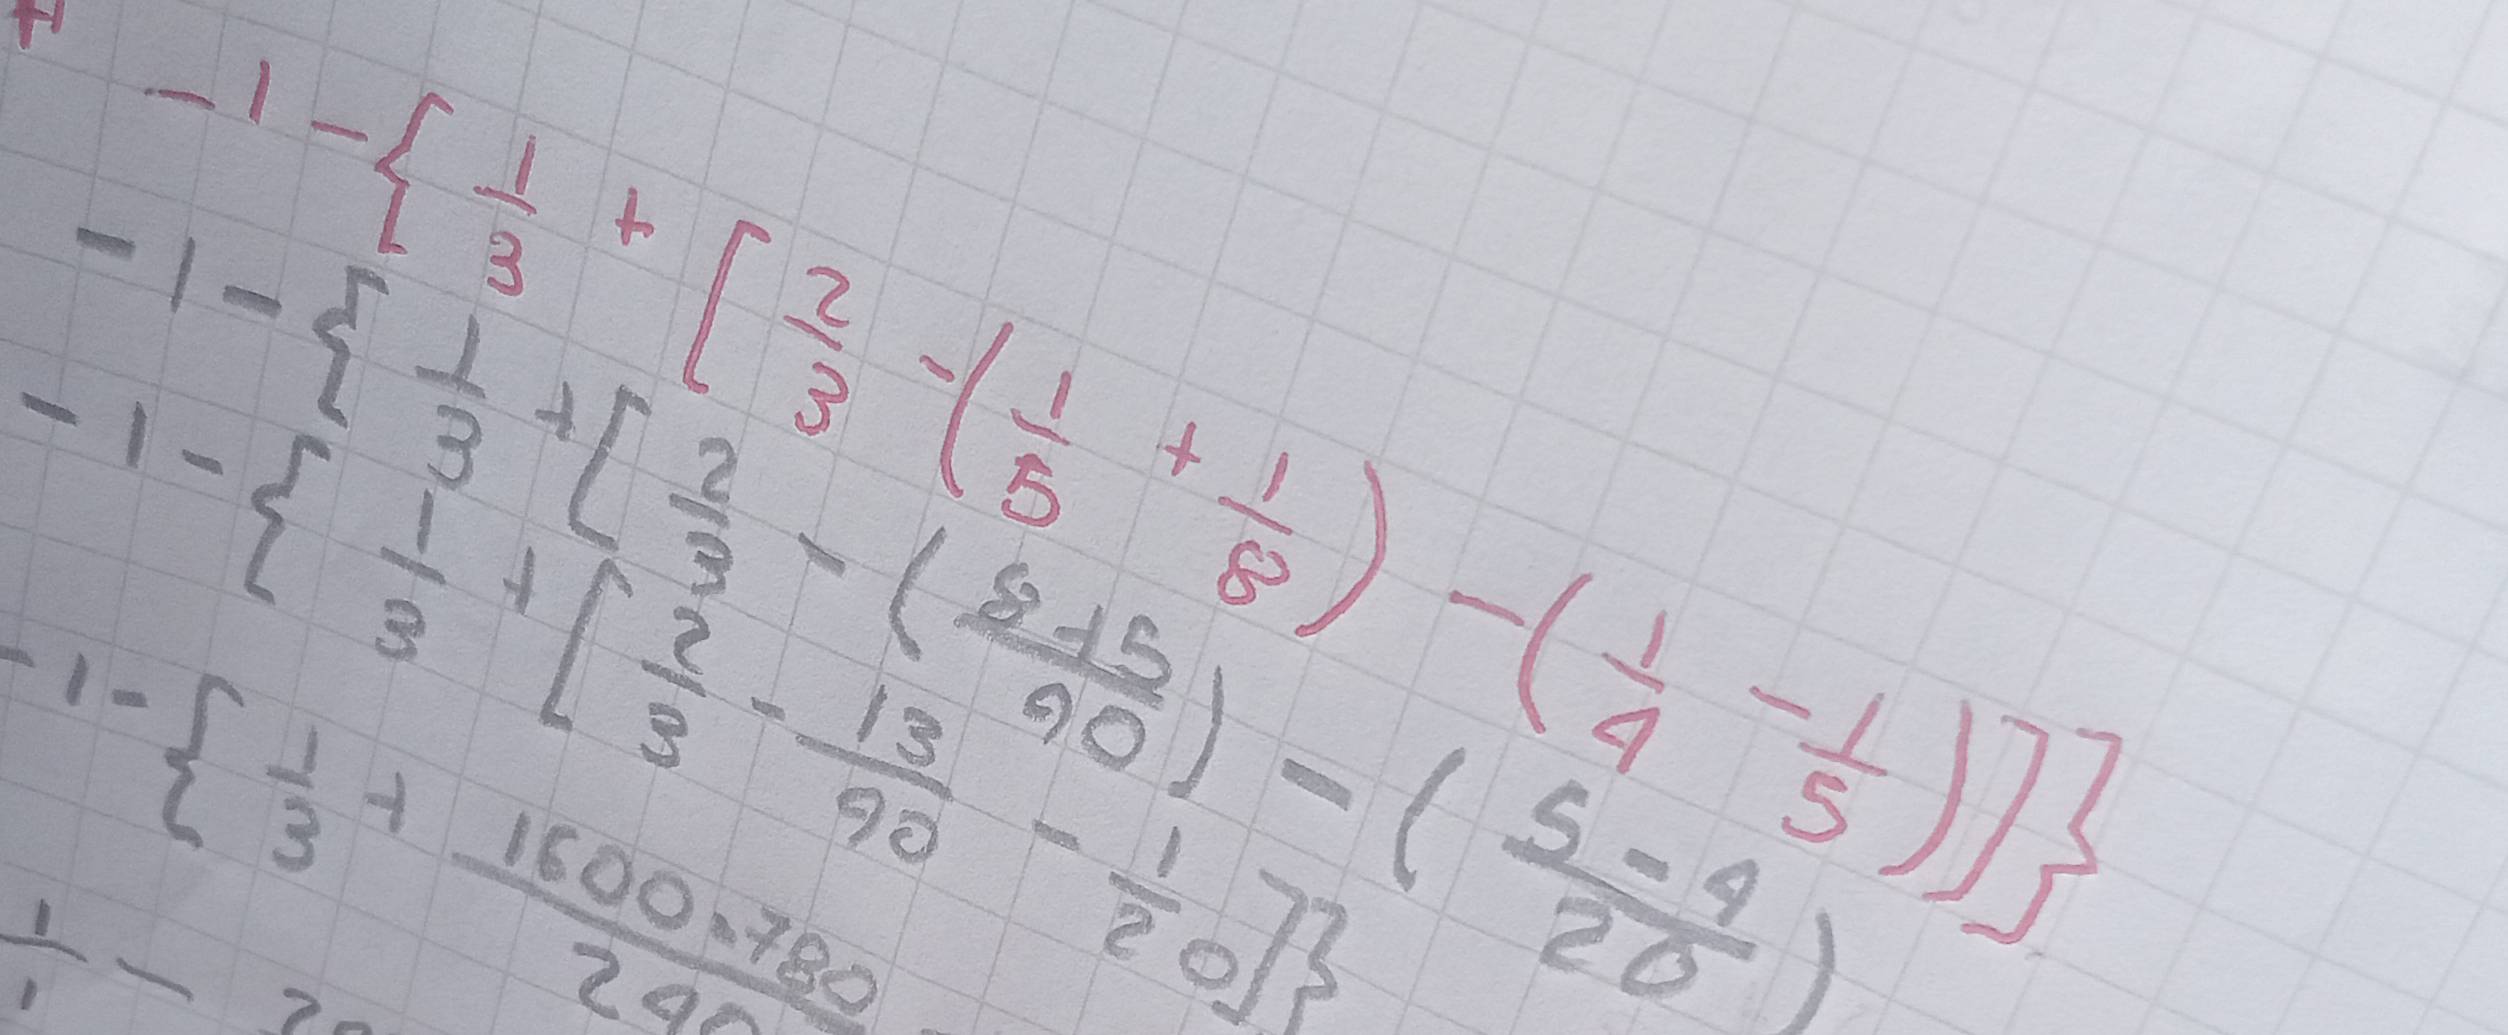 -1-{1/3 + [2/3 -(1/5 + 1/8) -(1/4 - 1/5)]}
-1-{1/3 +[2/3 - (8+5/40) - (5-4/20)
-1-{1/3 +[2/3 - 13/40 - 1/20]}
-1-{1/3 + 1600-780
1/1 -